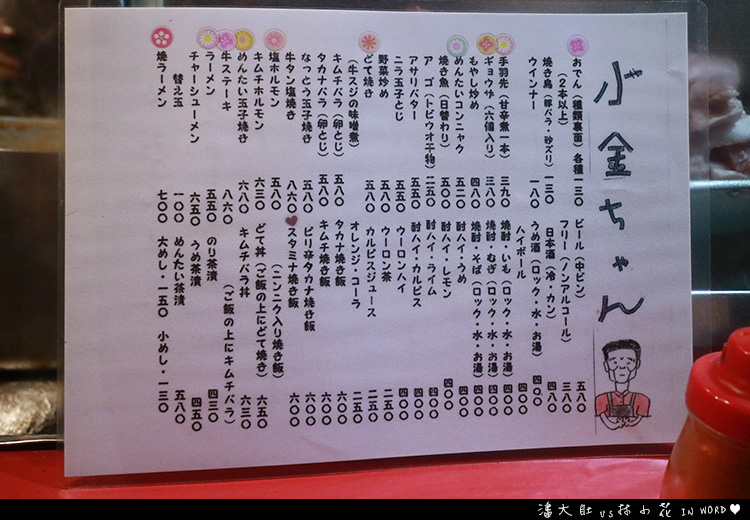 小金ちゃん
おでん(種類裏面)各種一三〇
(2本以上)
焼き鳥(豚バラ・砂ズリ)一三〇
ウインナー 一八〇
手羽先(甘辛煮一本) 三九〇
ギョウザ(六個入り) 三八〇
もやし炒め 四八〇
めんたいコンニャク 五二〇
焼き魚(日替わり) 五〇〇
アゴ(トビウオ干物) 二五〇
アサリバター 五五〇
ニラ玉子とじ 五五〇
野菜炒め 五八〇
どて焼き 五八〇
(牛スジの味噌煮)
キムチバラ(卵とじ) 五八〇
タカナバラ(卵とじ) 五八〇
なっとう玉子焼き 五八〇
牛タン塩焼き 八六〇
塩ホルモン 五八〇
キムチホルモン 六三〇
めんたい玉子焼き 六八〇
牛ステーキ 八六〇
ラーメン 五五〇
チャーシューメン 六五〇
替え玉 一〇〇
焼ラーメン 七〇〇
ビール(中ビン) 五八〇
フリー(ノンアルコール) 三八〇
日本酒(冷・カン) 四八〇
うめ酒(ロック・水・お湯) 四〇〇
ハイボール 四〇〇
焼酎・いも(ロック・水・お湯)四〇〇
焼酎・むぎ(ロック・水・お湯)四〇〇
焼酎・そば(ロック・水・お湯)四〇〇
酎ハイ・うめ 四〇〇
酎ハイ・レモン 四〇〇
酎ハイ・ライム 四〇〇
酎ハイ・カルピス 四〇〇
ウーロンハイ 四〇〇
ウーロン茶 二五〇
カルピスジュース 二五〇
オレンジ・コーラ 二五〇
タカナ焼き飯 六〇〇
キムチ焼き飯 六〇〇
ピリ辛タカナ焼き飯 六〇〇
スタミナ焼き飯 六〇〇
(ニンニク入り焼き飯)
どて丼(ご飯の上にどて焼き) 六五〇
キムチバラ丼 六三〇
(ご飯の上にキムチバラ)
のり茶漬 四三〇
うめ茶漬 四五〇
めんたい茶漬 五八〇
大めし・一五〇 小めし・一三〇
潘大肚 vs 林小花 IN WORD♥